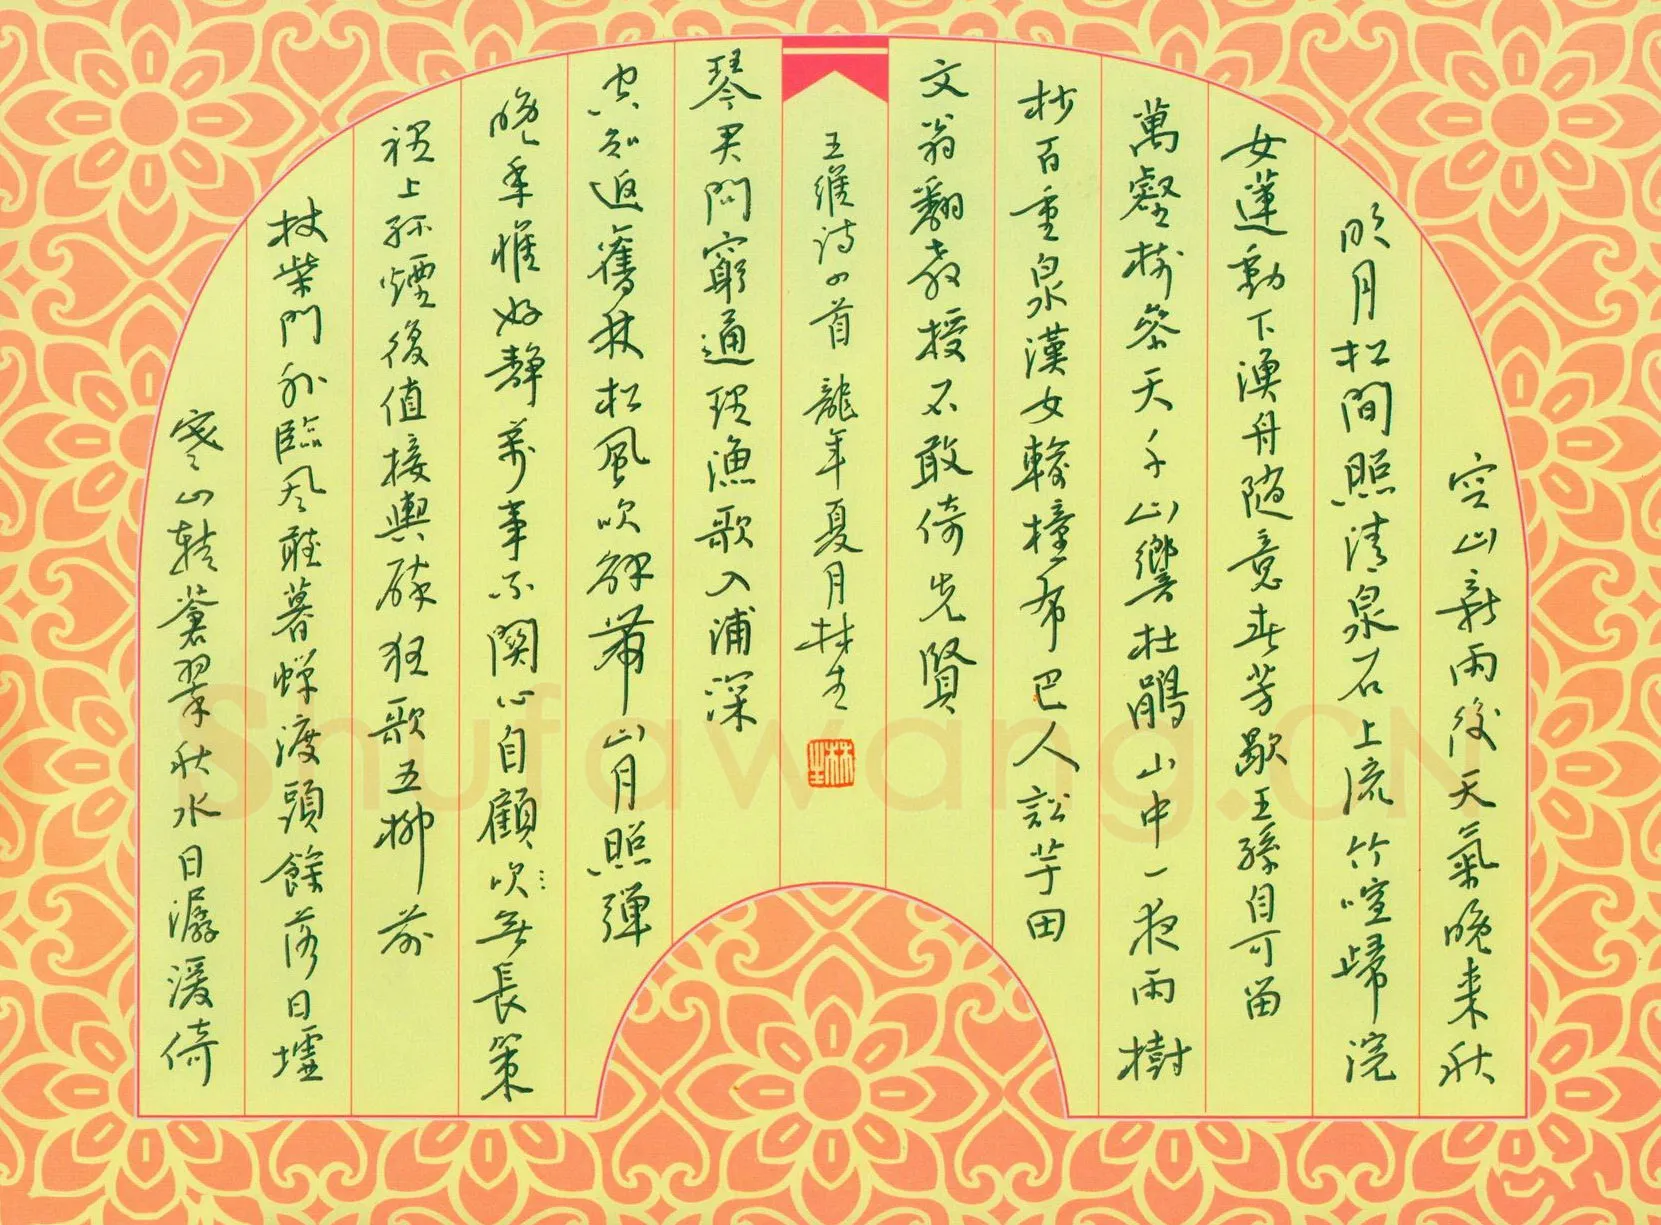 空山新雨後天氣晚来秋
明月松间照清泉石上流竹喧歸浣
女蓮動下漁舟随意春芳歇王孫自可留
萬壑樹參天千山響杜鵑山中一夜雨樹
杪百重泉漢女輸橦布巴人訟芋田
文翁翻教授不敢倚先賢
寒山转蒼翠秋水日潺湲倚
杖柴門外臨风聽暮蟬渡頭餘落日墟
裡上孤煙復值接輿醉狂歌五柳前
晚年惟好靜萬事不関心自顧吹無長策
空知返舊林松風吹解帶山月照彈
琴君問窮通理漁歌入浦深
王維诗四首 龍年夏月林生
林生
Shufawang.CN